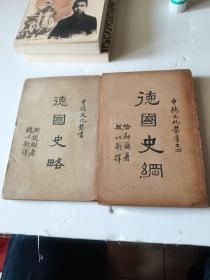 中德文化叢書
德國史略
魏以新譯
中德文化叢書之四
德國史綱
哈勒爾著
魏以新譯